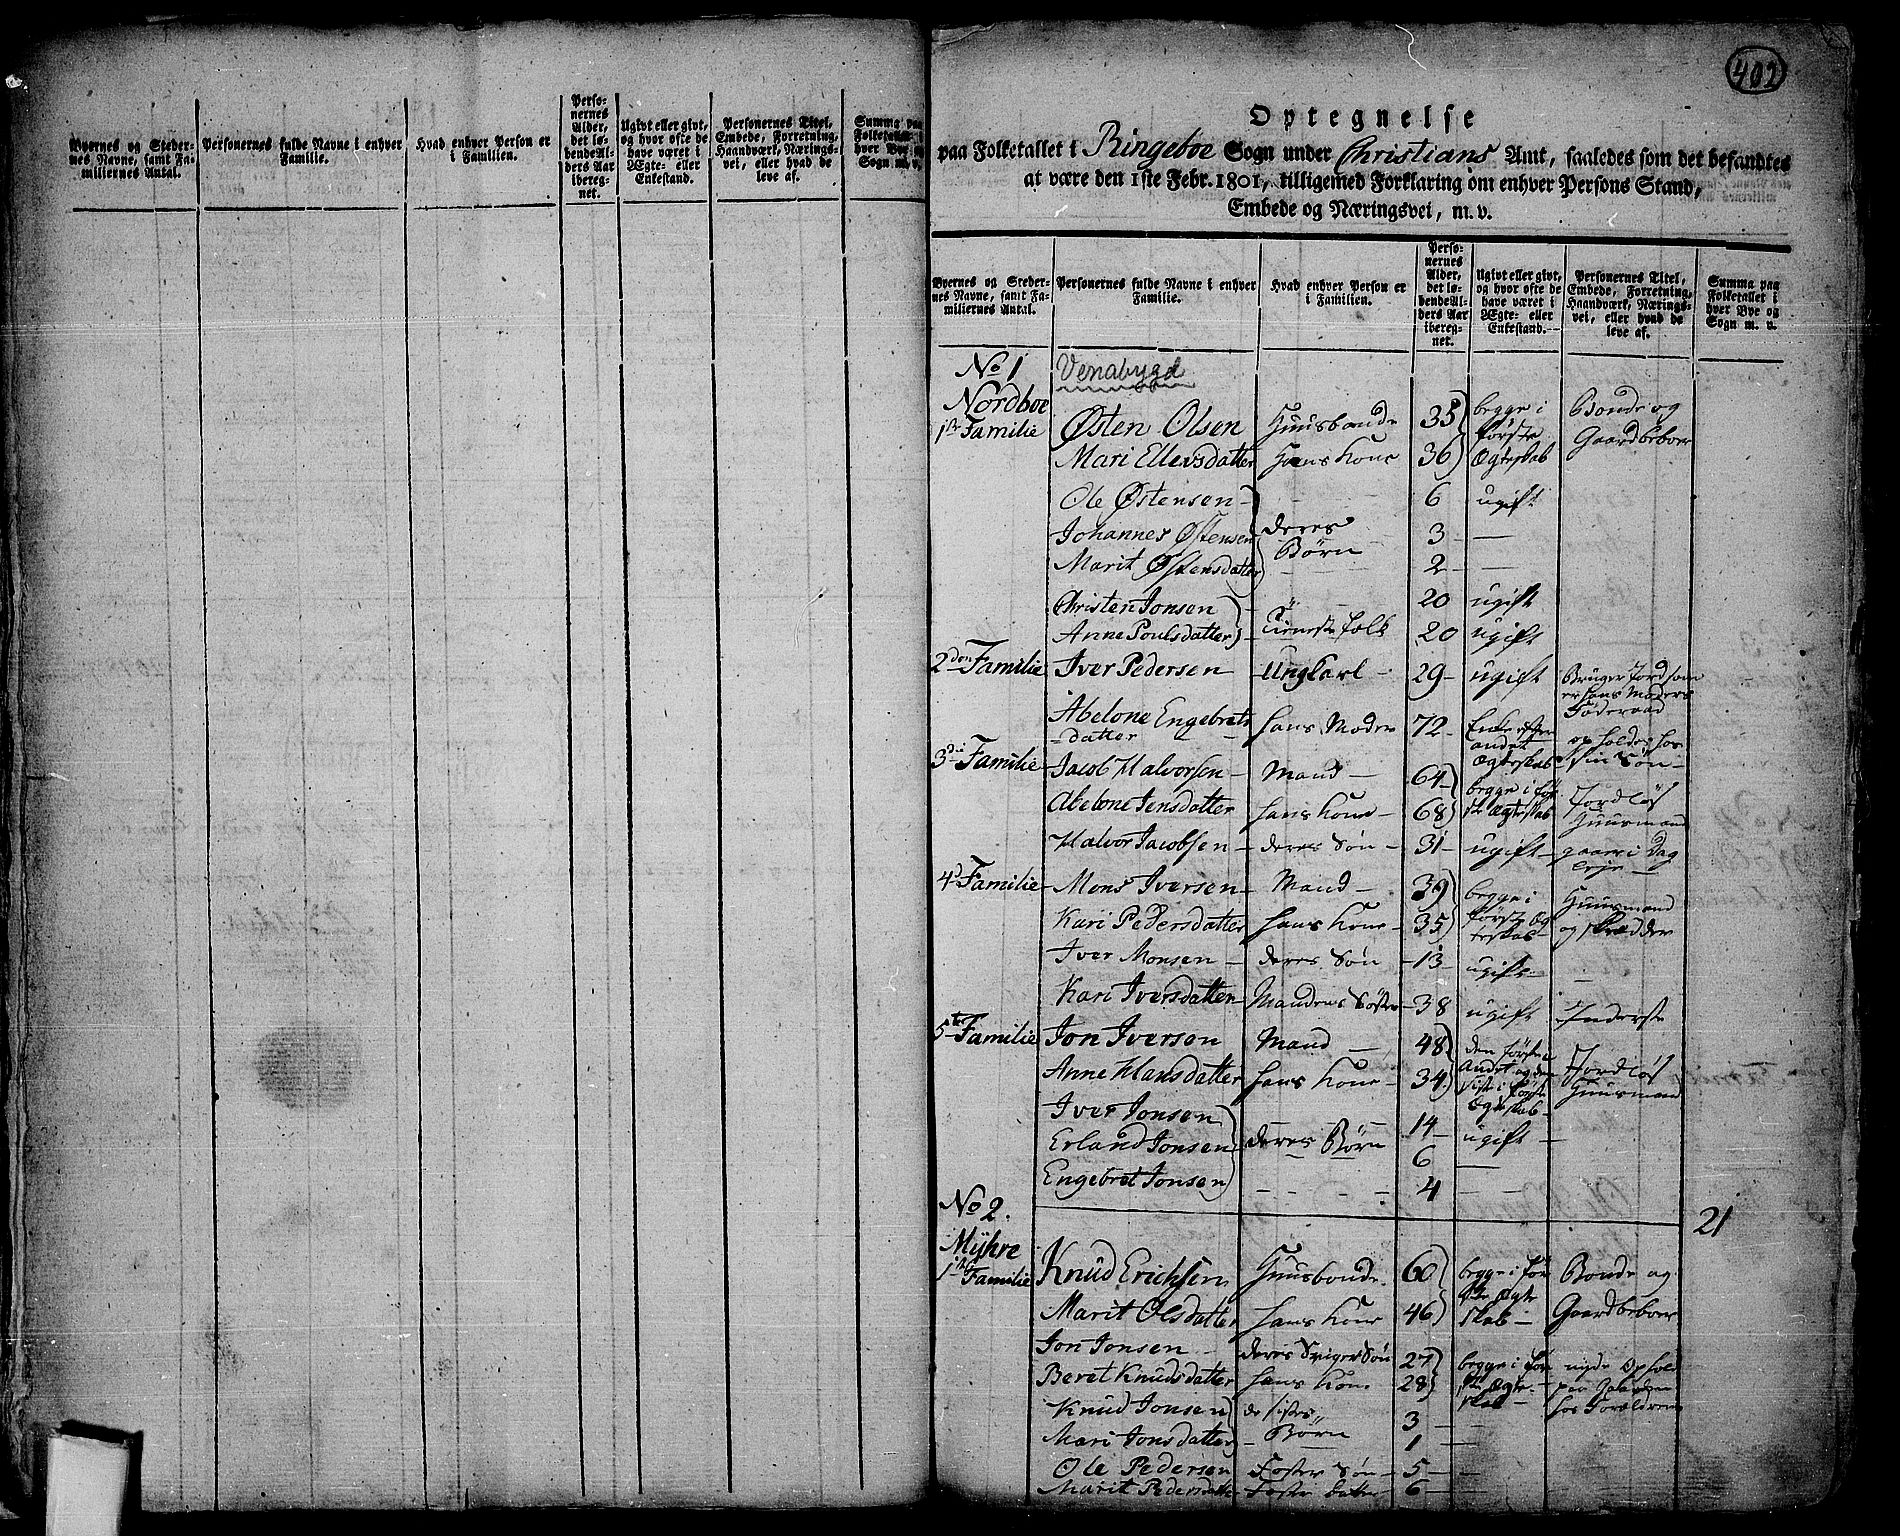 Byernes og Steder-
nes Navne, samt Fa-
miliernes Antal.
Personernes fulde Navne i enhver
Familie.
Hvad enhver Person er
i Familien.
Perso-
nernes
Alder,
det lø-
bende Al-
ders Aar
iberegs-
net.
Ugivt eller givt,
og hvor ofte de
have været i
Ægte- eller
Enkestand.
Personernes Titel,
Embede, Forretning,
Haandværk, Nærings-
vei, eller hvad de
leve af.
Summa paa
Folketallet
hver Bye og
Sogn m. v.
402
Optegnelse
paa Folketallet i Ringeboe Sogn under Christians Amt, saaledes som det befandtes
at være den 1ste Febr. 1801, tilligemed Forklaring om enhver Persons Stand,
Embede og Næringsvei, m. v.
Byernes og Steder-
nes Navne, samt Fa-
miliernes Antal.
Personernes fulde Navne i enhver
Familie.
Hvad enhver Person er
i Familien.
Perso-
nernes
Alder,
det lø-
bende Al-
ders Aar
iberegs-
net.
Ugivt eller givt,
og hvor ofte de
have været i
Ægte- eller
Enkestand.
Personernes Titel,
Embede, Forretning,
Haandværk, Nærings-
vei, eller hvad de
leve af.
Summa paa
Folketallet i
hver Bye og
Sogn m. v.
No 1 Venabygd
Nordboe
1ste Familie Østen Olsen Huusbonde 35 begge i første Ægteskab Bonde og Gaardbeboer
Mari Ellevsdatter Hans Kone 36
Ole Østensen 6 ugift
Johannes Østensen deres Børn 3 —
Marit Østensdatter 2 —
Christen Jonsen 20 ugift
Anne Poulsdatter Tieneste folk 20 ugift
2den Familie Iver Pedersen Ungkarl 29 ugift Bruger Jord som er hans Moders Føderaad
Abelone Engebrets- hans Moder 72 Enke efter andet Ægteskab opholder hos sin Søn
datter
3die Familie Jacob Halvorsen Mand 64 begge i første Ægteskab Jordløs Huusmand
Abelone Jensdatter hans Kone 68
Halvor Jacobsen deres Søn 31 ugift gaaer i Dag leje
4de Familie Mons Iversen Mand 39 begge i første Ægteskab Huusmand og skrædder
Kari Pedersdatter hans Kone 35
Iver Monsen deres Søn 13 ugift
Kari Iversdatter Mandens Søster 38 ugift Inderste
5te Familie Jon Iversen Mand 48 den første i Andet og den siste i første Ægteskab Jordløs Huusmand
Anne Hansdatter hans Kone 34
Iver Jonsen 14 ugift
Erland Jonsen deres Børn 6 —
Engebret Jonsen 4 —
No 2. 21
Myhre
1ste Familie Knud Erichsen Huusbonde 60 begge i første Ægteskab Bonde og Gaardbeboer
Marit Olsdatter hans Kone 46
Jon Jonsen deres Sviger Søn 27 begge i første Ægteskab
Beret Knudsdatter hans Kone 28 paa Gaarden hos Forældrene
Knud Jonsen de sistes 3 —
Mari Jonsdatter Børn 1 —
Ole Pedersen Foster Søn 5 —
Marit Pedersdatter Foster Datter 6 —